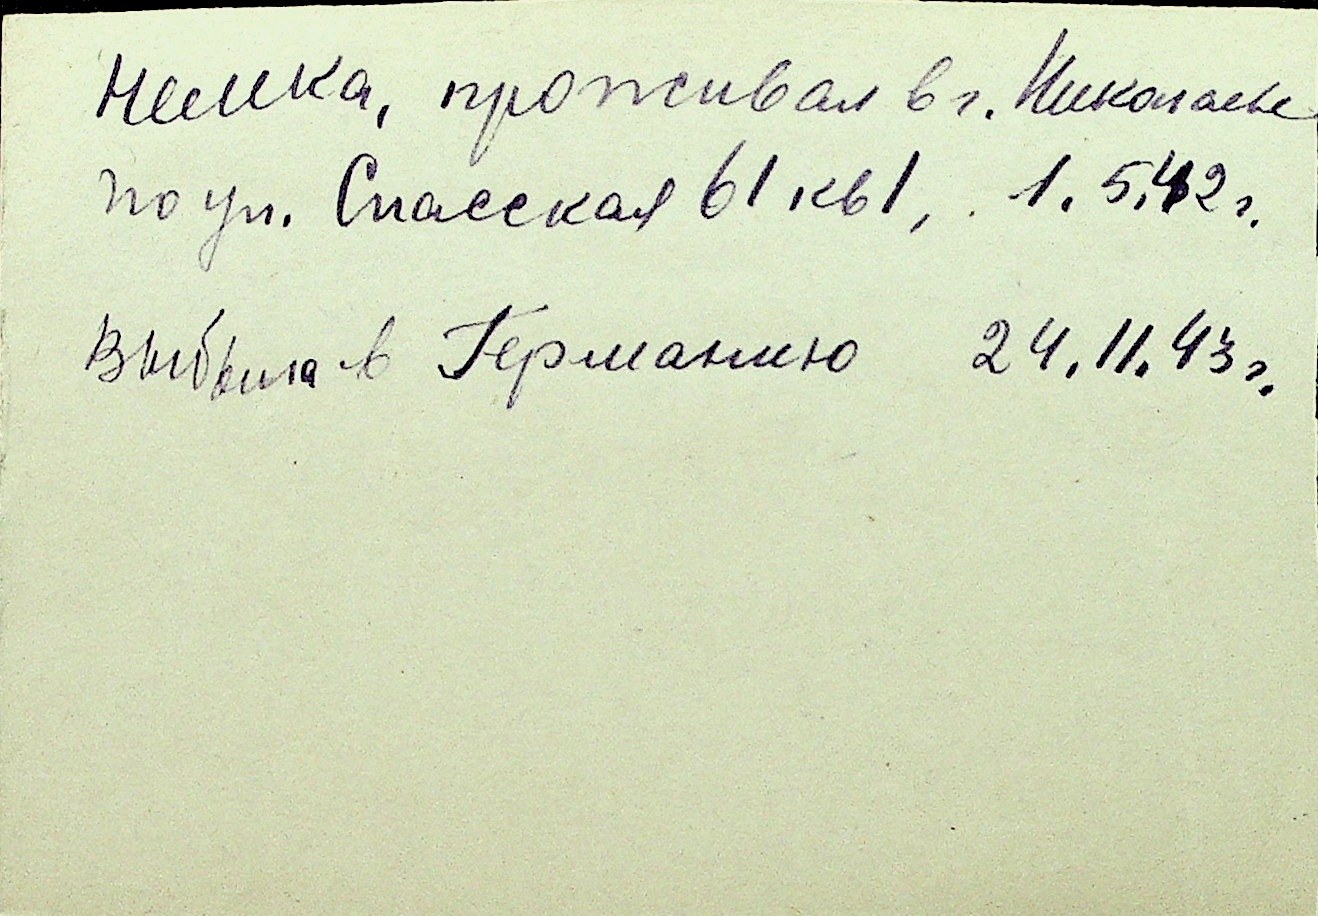 Немка, проживал в г. Николаеве
по ул. Спасская 61 кв 1, 1.5.42 г.
Выбыла в Германию 24.11.43 г.